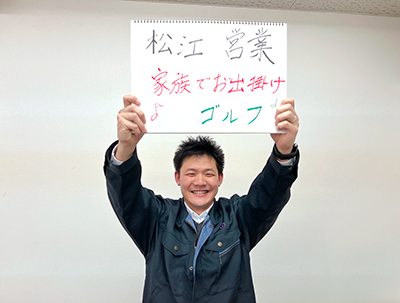 松江 営業
家族でお出掛け
♪ ゴルフ♪